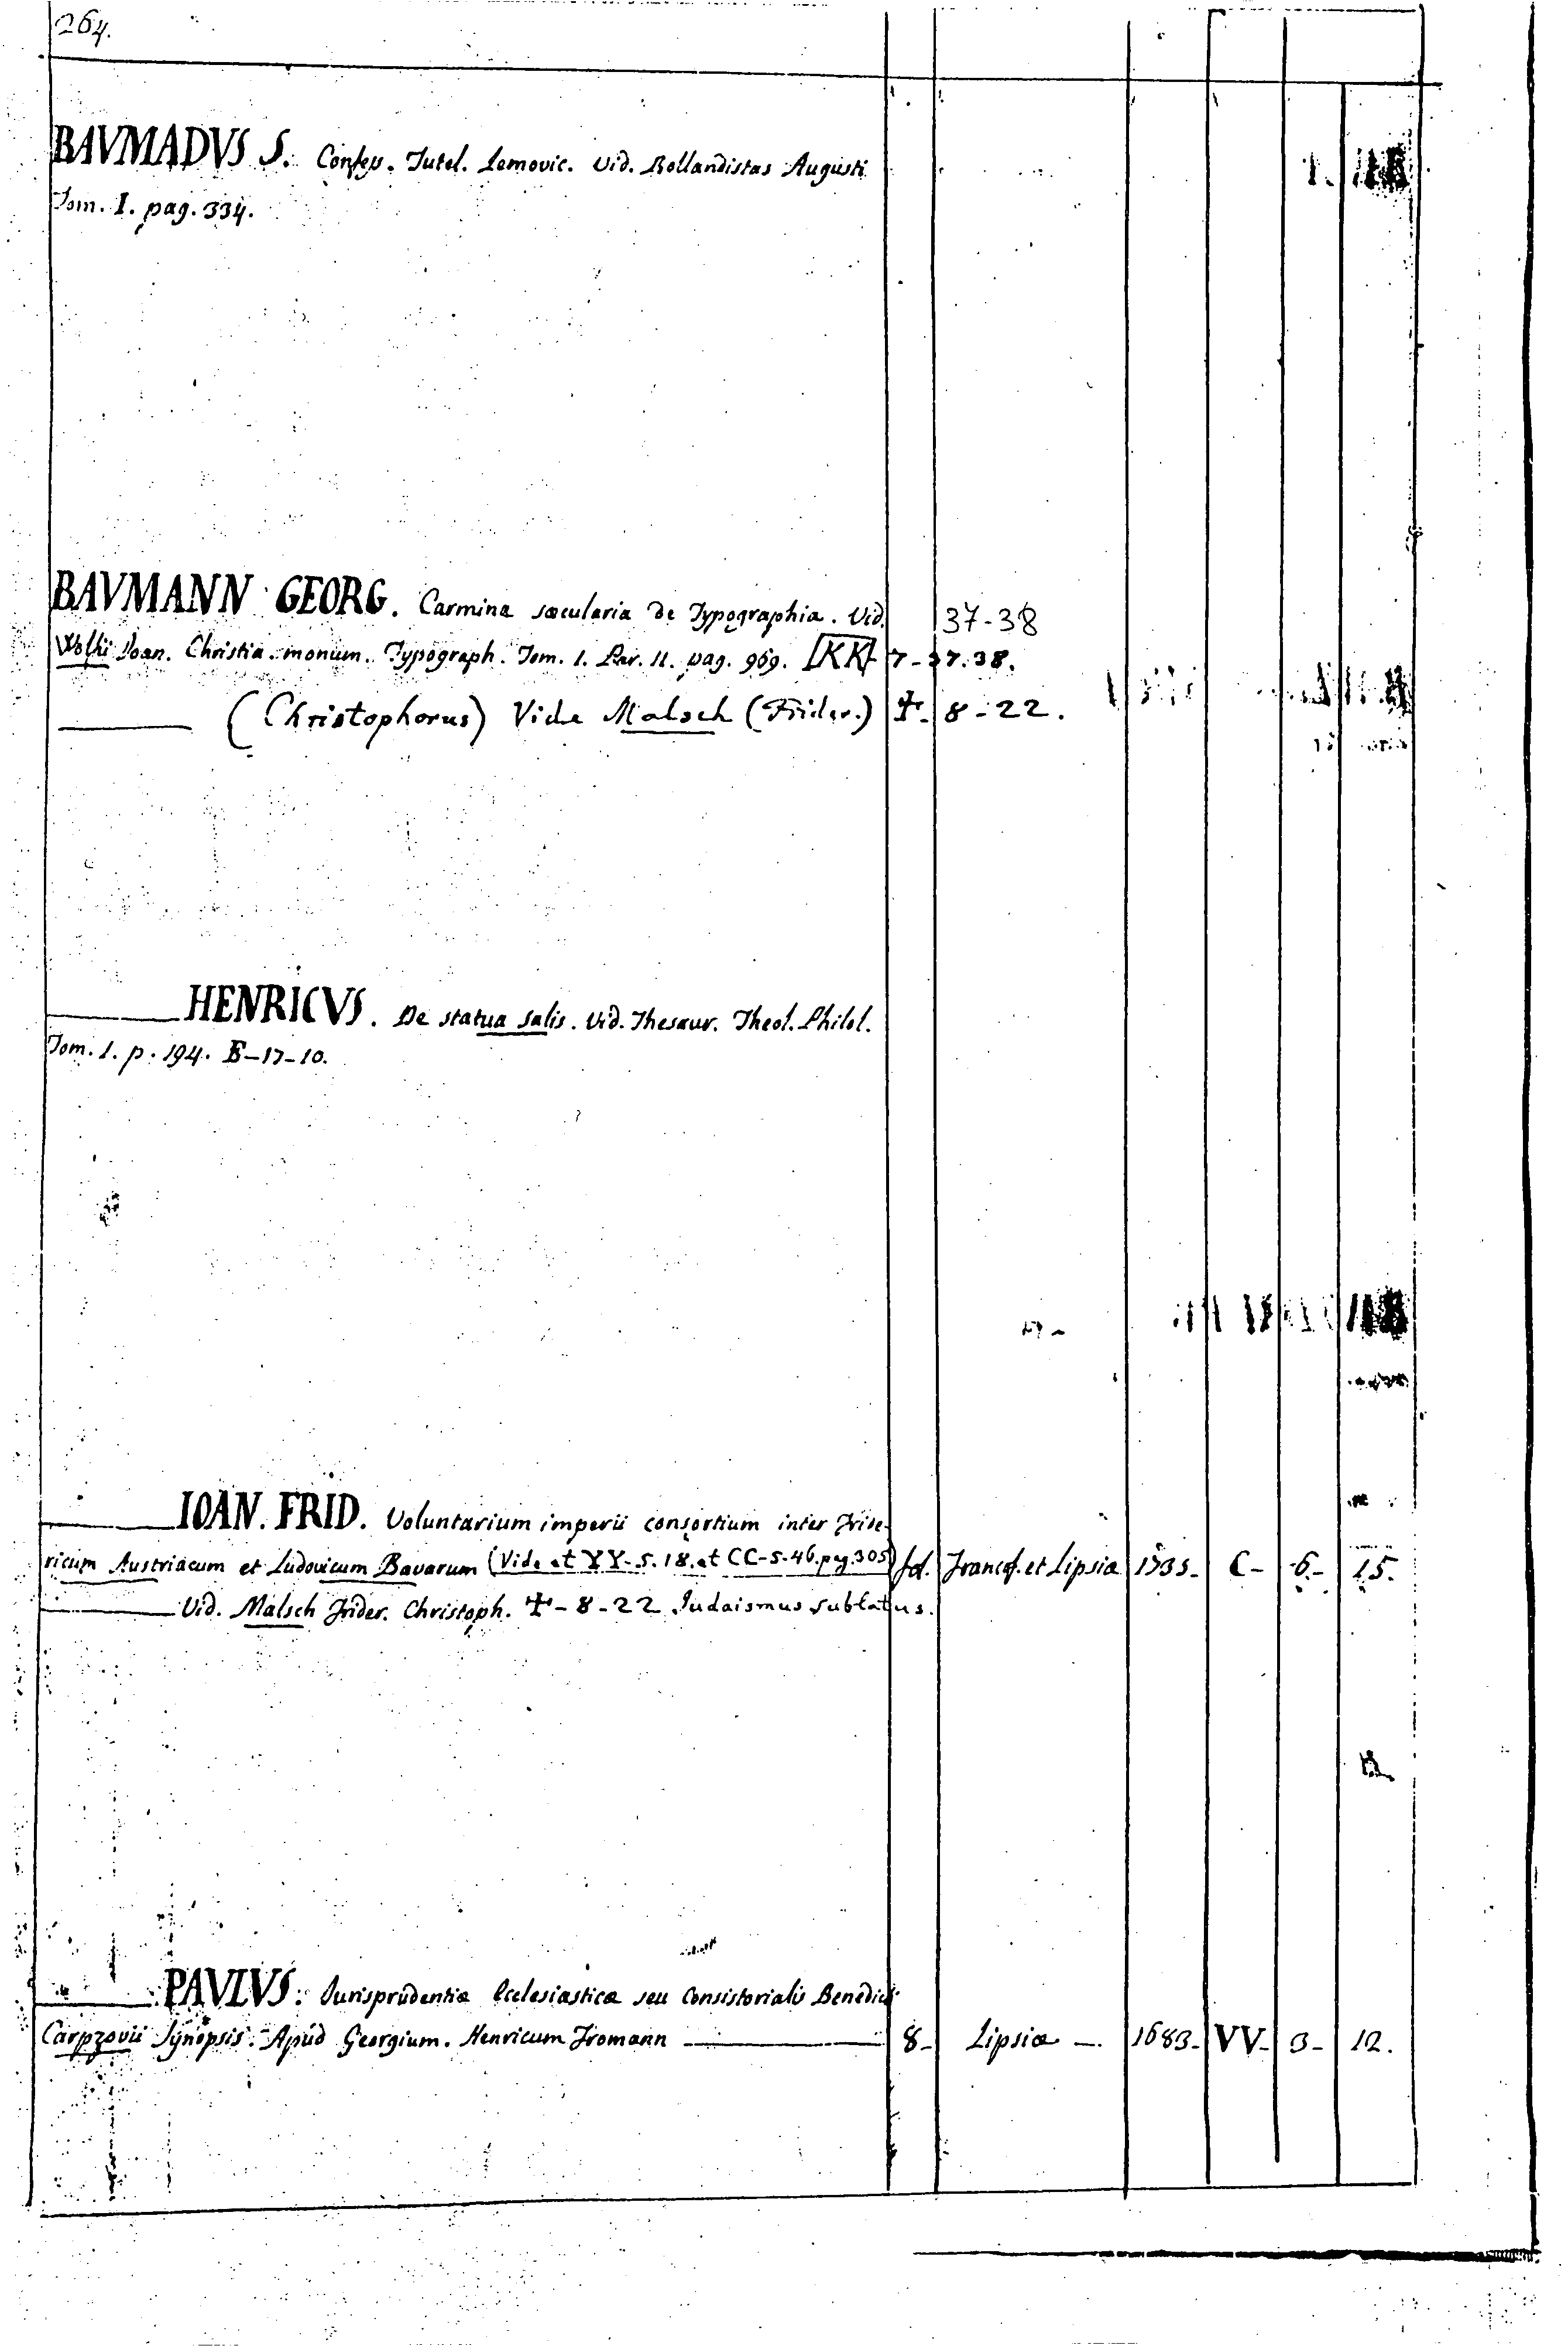 264.
BAVMADVS S. Confess. Tutel. Lemovic. Vid. Bollandistas Augusti
Tom. I. pag. 334.
BAVMANN GEORG. Carmina sæcularia de Typographia. Vid. 37-38
Wolfii Ioan. Christia. monum. Typograph. Tom. 1. Par. 11. pag. 969. KK 7-37.38.
——— (Christophorus) Vide Malsch (Frider.) ☩- 8-22.
——— HENRICVS. De statua salis. Vid. Thesaur. Theol. Philol.
Tom. 1. p. 194. E-17-10.
——— IOAN. FRID. Voluntarium imperii consortium inter Fride-
ricum Austriacum et Ludovicum Bavarum (Vide et YY-5.18. et CC-5-46. pag. 305) fol. Francof. et Lipsiæ 1735- C- 6- 15.
——— Vid. Malsch Frider. Christoph. ☩-8-22 Judaismus sublatus.
——— PAVLVS. Iurisprudentia Ecclesiastica seu Consistorialis Benedicti
Carpzovii Synopsis. Apud Georgium. Henricum Fromann ——— 8- Lipsiæ —. 1683- VV- 3- 12.